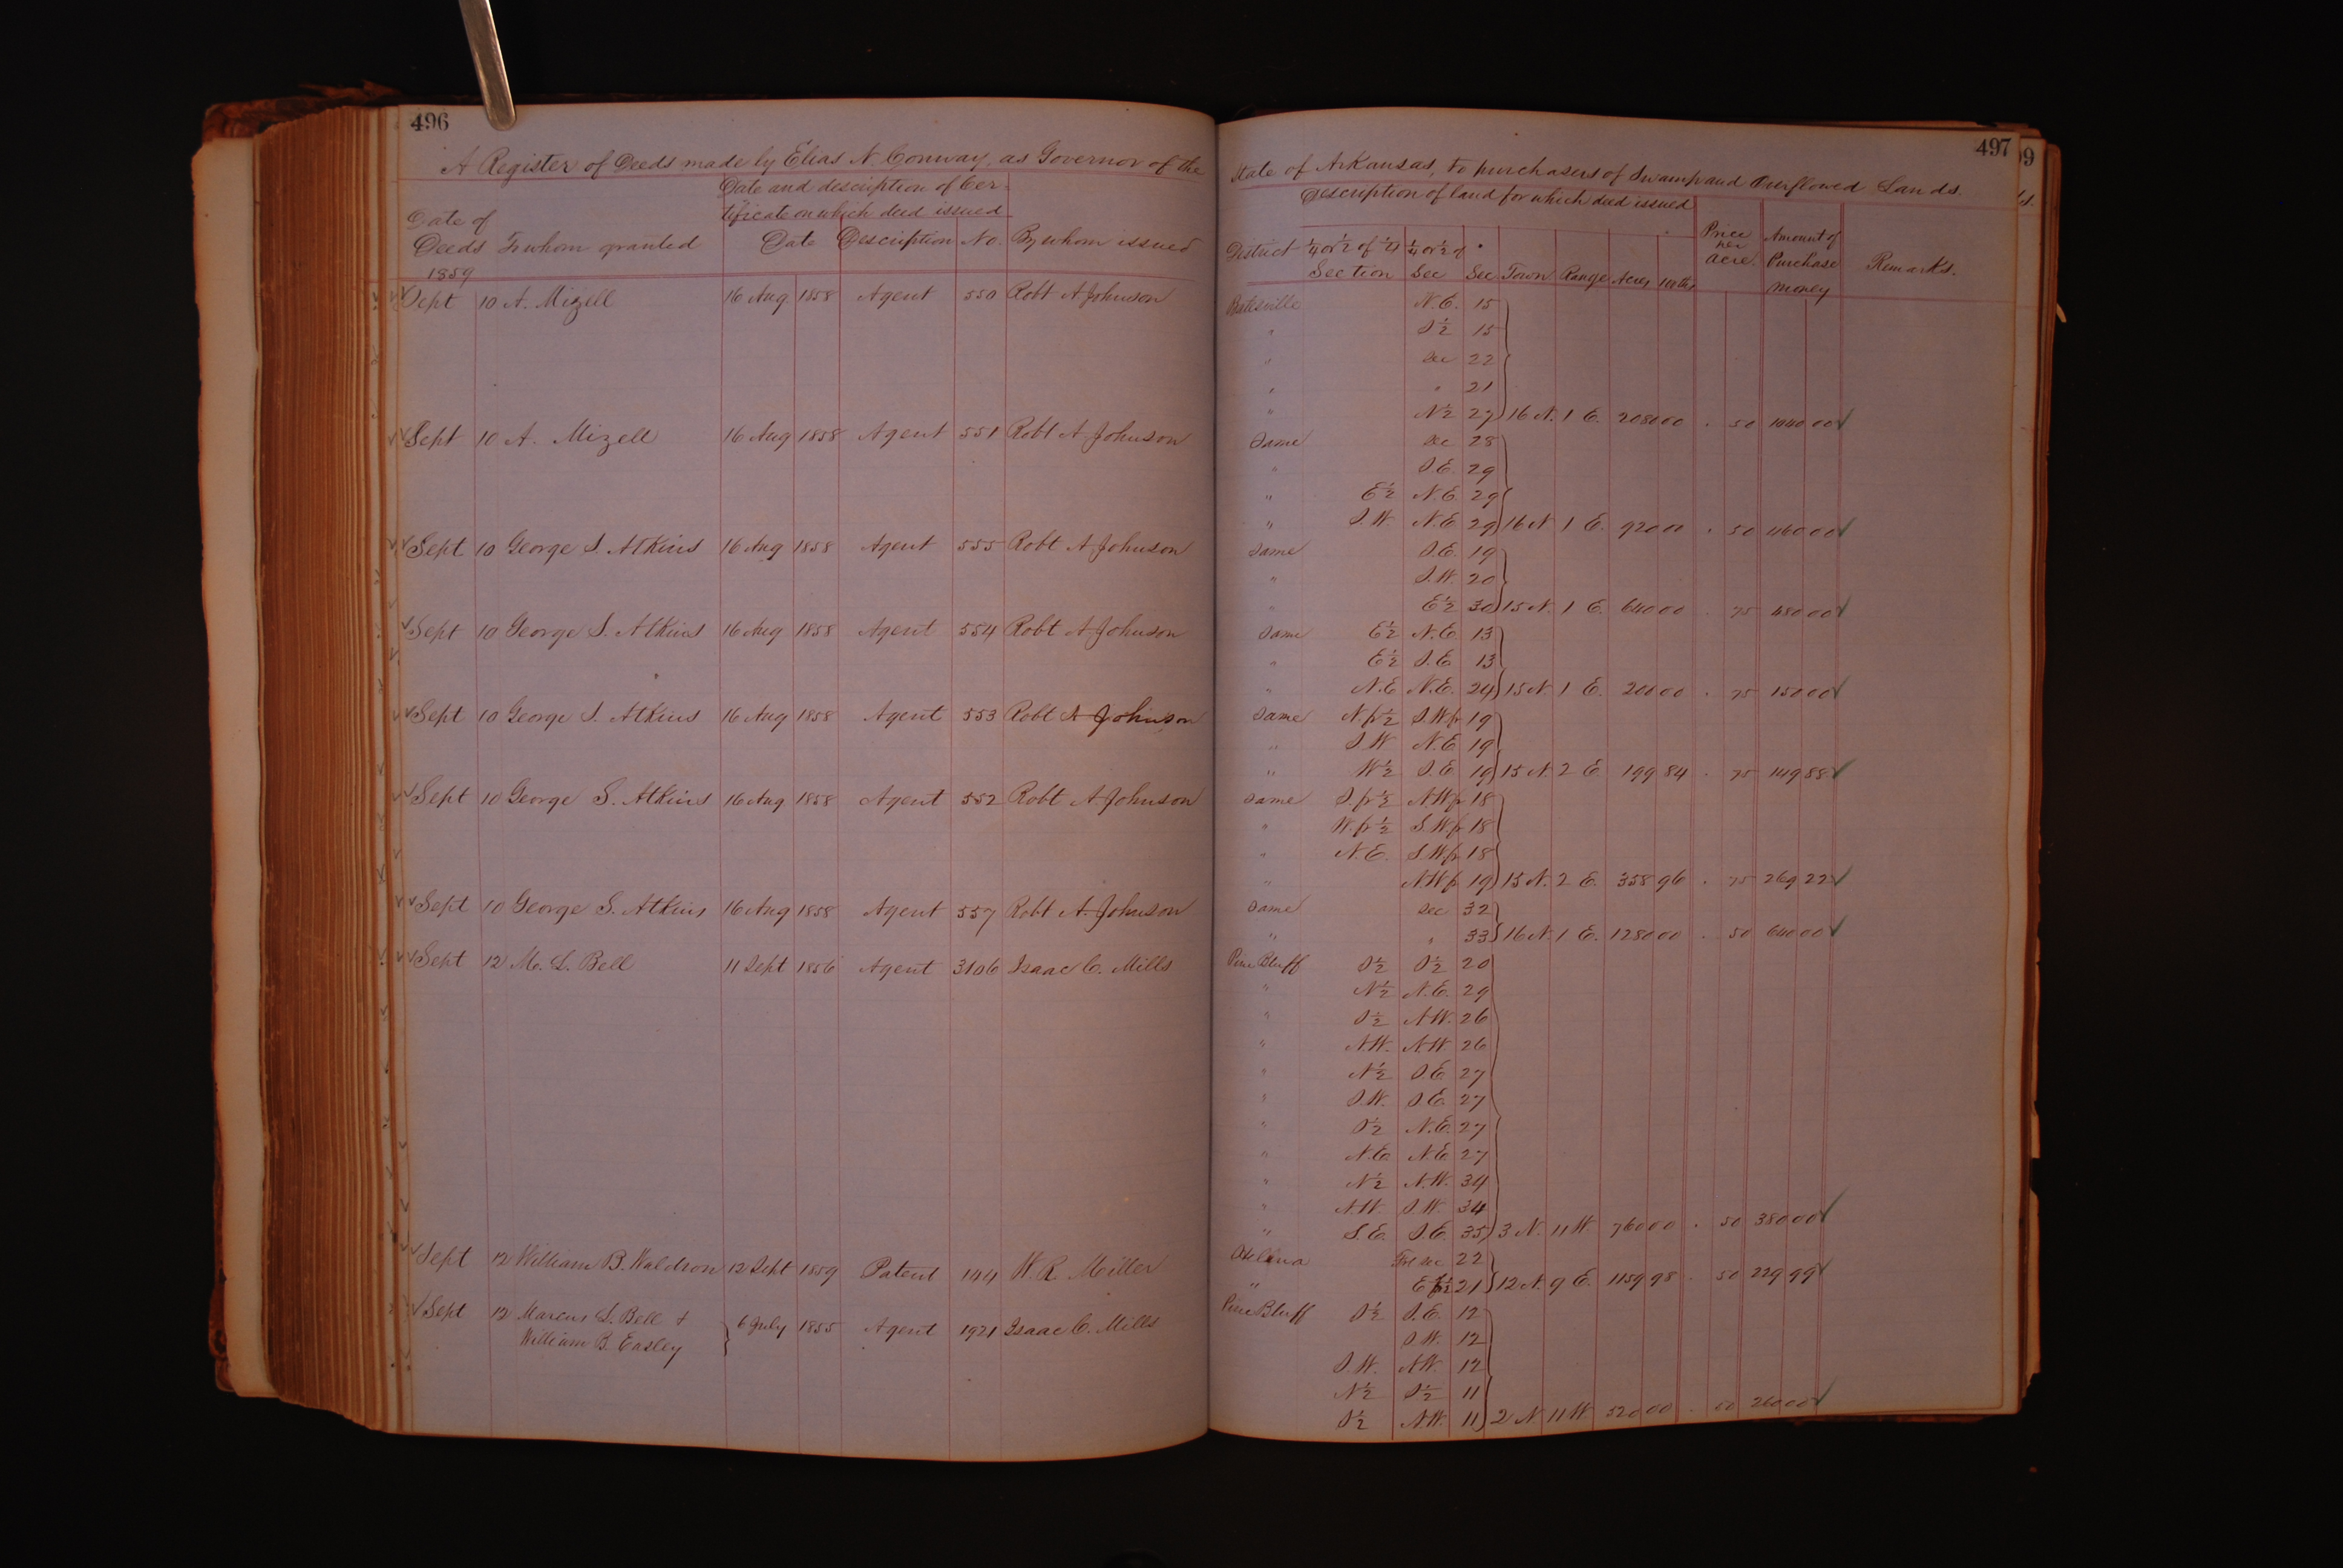 496
A Register of Deeds made by Elias N. Conway, as Governor of the
Date and description of Cer-
tificate on which deed issued
Date of
Deeds To whom granted Date Description No. By whom issued
1859
Sept 10 A. Mizell 16 Aug 1858 Agent 550 Robt A Johnson
Sept 10 A. Mizell 16 Aug 1858 Agent 551 Robt A Johnson
Sept 10 George S. Atkins 16 Aug 1858 Agent 555 Robt A Johnson
Sept 10 George S. Atkins 16 Aug 1858 Agent 554 Robt A Johnson
Sept 10 George S. Atkins 16 Aug 1858 Agent 553 Robt A Johnson
Sept 10 George S. Atkins 16 Aug 1858 Agent 552 Robt A. Johnson
Sept 10 George S. Atkins 16 Aug 1858 Agent 557 Robt A. Johnson
Sept 12 M. L. Bell 11 Sept 1856 Agent 3106 Isaac C. Mills
Sept 12 William B. Waldron 12 Sept 1859 Patent 144 W. R. Miller
Sept 12 Marcus L. Bell & 6 July 1855 Agent 1921 Isaac C. Mills
William B. Easley
497
99
State of Arkansas, to purchasers of Swamp and Overflowed Lands.
Description of land for which deed issued
District 1/4 or 1/2 of 1/4 1/4 or 1/2 of Price per Amount of
Section Sec Sec Town Range Acres 100ths acre. Purchase money Remarks.
Batesville N.E. 15
" S 1/2 15
" Sec 22
" " 21
" N 1/2 27 16 N. 1 E. 2080 00 . 50 1040 00 ✓
Same Sec 28
" S.E. 29
" E 1/2 N.E. 29
" S.W. N.E 29 16 N 1 E. 920 00 . 50 460 00 ✓
Same S.E. 19
" S.W. 20
" E 1/2 30 15 N. 1 E. 640 00 . 75 480 00 ✓
Same E 1/2 N.E. 13
" E 1/2 S.E 13
" N.E N.E. 24 15 N. 1 E. 200 00 . 75 150 00 ✓
Same N.fr 1/2 S.W.fr 19
" S.W N.E 19
" W 1/2 S.E 19 15 N. 2 E 199 84 . 75 149 88 ✓
Same S.fr 1/2 N.W fr 18
" W.fr 1/2 S.W fr 18
" N.E. S.W fr 18
" N.W fr 19 15 N. 2 E. 358 96 . 75 269 22 ✓
Same Sec 32
" " 33 16 N. 1 E. 1280 00 . 50 640 00 ✓
Pine Bluff S 1/2 S 1/2 20
" N 1/2 N.E. 29
" S 1/2 N.W. 26
" N.W. N.W. 26
" N 1/2 S.E 27
" S.W. S.E. 27
" S 1/2 N.E. 27
" N.E. N.E 27
" N 1/2 N.W. 34
" N.W. S.W. 34
" S.E. S.E. 35 3 N. 11 W. 760 00 . 50 380 00 ✓
Helena Frl sec 22
" E fr 1/2 21 12 N. 9 E. 1159 98 . 50 229 99 ✓
Pine Bluff S 1/2 S.E. 12
S.W. 12
S.W. N.W. 12
N 1/2 S 1/2 11
S 1/2 N.W. 11 2 N 11 W 520 00 . 50 260 00 ✓